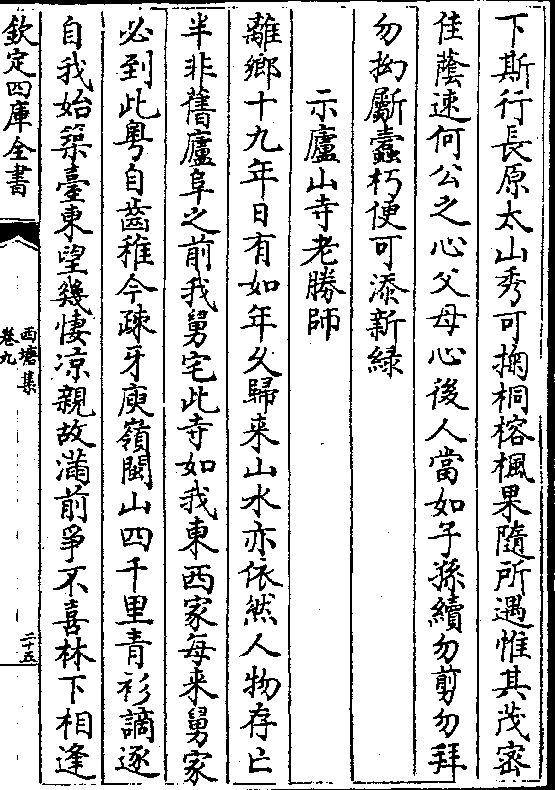 下斯行長原太山秀可掬桐榕楓果隨所遇惟其茂宻
佳蔭速何公之心父母心後人當如子孫續勿剪勿拜
勿拗斸蠧朽使可添新緑
示廬山寺老勝師
離鄉十九年日有如年乆歸来山水亦依然人物存亡
半非舊廬阜之前我舅宅此寺如我東西家每来舅家
必到此粤自齒稚今疎牙庾嶺閩山四千里青衫謫逐
自我始築臺東望幾悽凉親故滿前爭不喜林下相逢
欽定四庫全書
西塘集
卷九
二十五